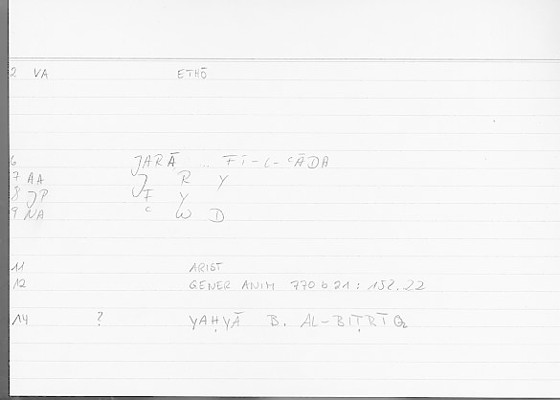 2 VA ETHŌ
6 JARĀ ... FĪ-L-ʿĀDA
7 AA J R Y
8 JP F Y
9 NA ʿ W D
11 ARIST
12 GENER ANIM 770 b 21 : 152.22
14 ? YAḤYĀ B. AL-BIṬRĪQ